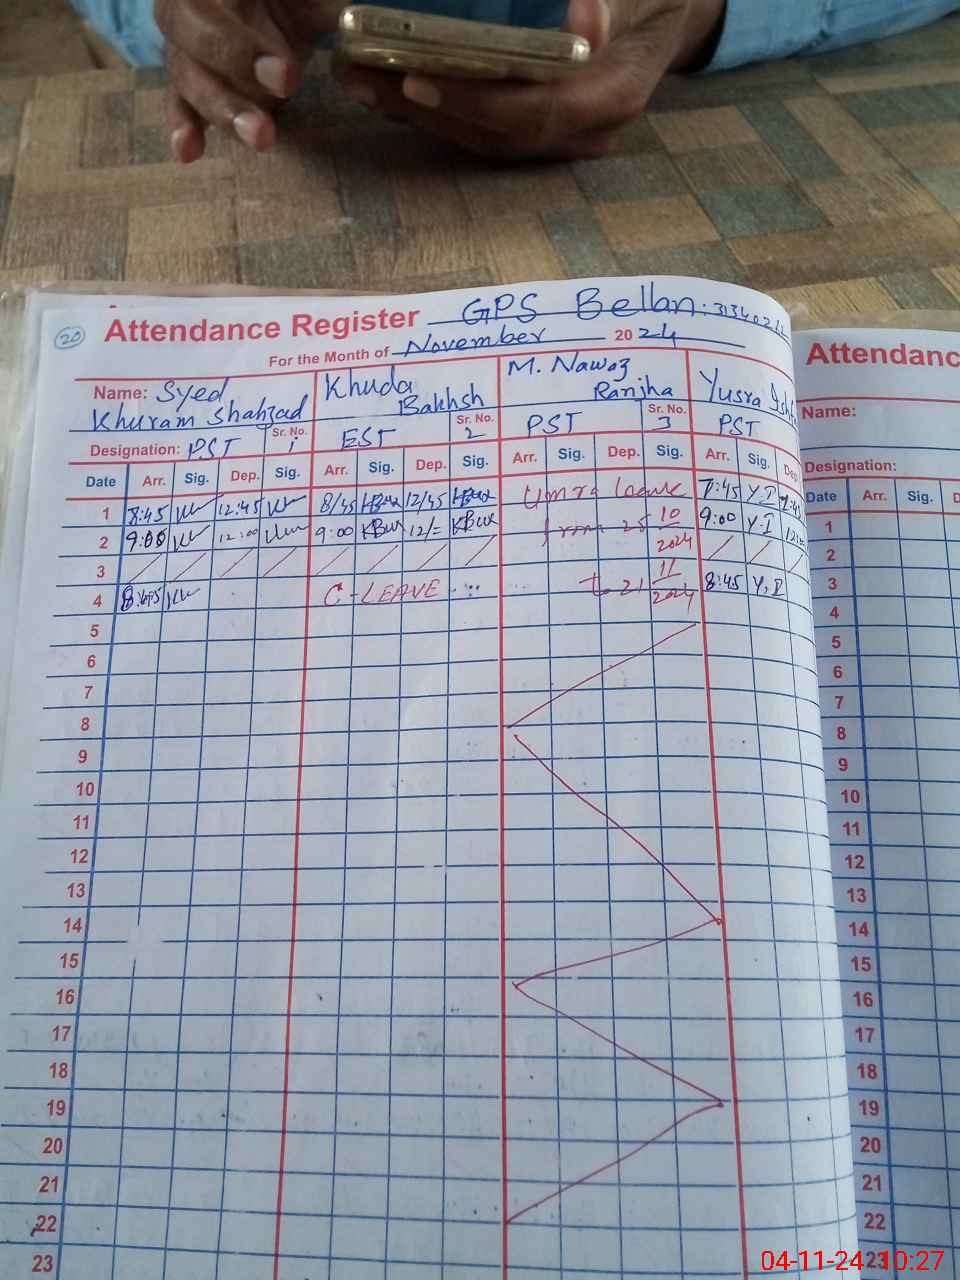 20
Attendance Register GPS Bellan:
For the Month of November 2024
Name: Syed Khuram Shahzad
Khuda Bakhsh
M. Nawaz Ranjha
Yusra
Designation: PST Sr. No. 1
EST Sr. No. 2
PST Sr. No. 3
PST
Date Arr. Sig. Dep. Sig. Arr. Sig. Dep. Sig. Arr. Sig. Dep. Sig. Arr. Sig. Dep
1 8:45 12:45 8/45 12/45 Umra leave 7:45 Y.I
2 9:00 12:00 9:00 KBux 12/= KBux from 25 10/2024 9:00 Y.I
3 / / / / / / / / / / /
4 8:45 C-LEAVE to 21 11/2024 8:45 Y.I
5
6
7
8
9
10
11
12
13
14
15
16
17
18
19
20
21
22
23
Attendanc
Name:
Designation:
Date Arr. Sig. D
1
2
3
4
5
6
7
8
9
10
11
12
13
14
15
16
17
18
19
20
21
22
23
04-11-24 10:27